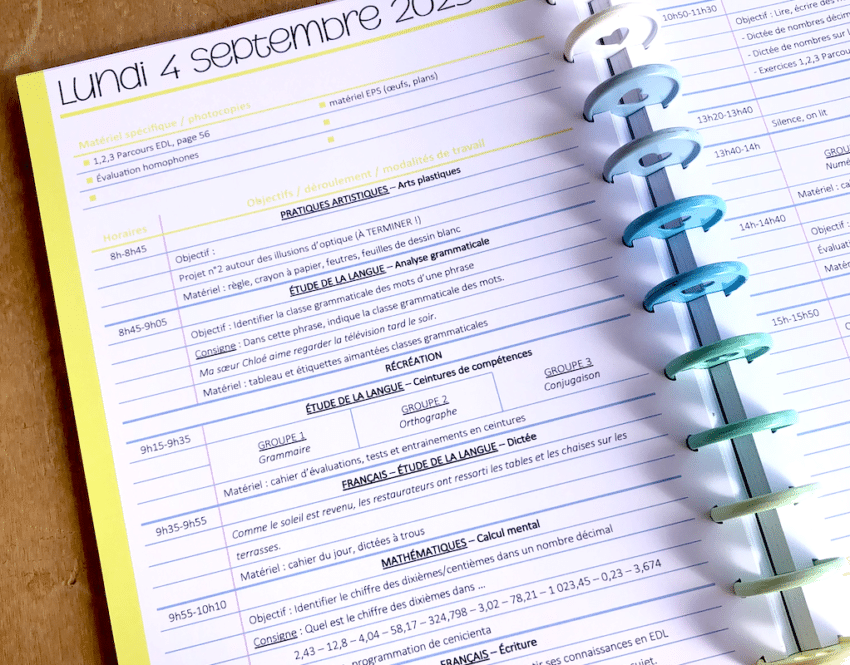 Lundi 4 septembre 2023
Matériel spécifique / photocopies
1,2,3 Parcours EDL, page 56
matériel EPS (œufs, plans)
Évaluation homophones
Objectifs / déroulement / modalités de travail
Horaires
PRATIQUES ARTISTIQUES – Arts plastiques
8h-8h45
Objectif :
Projet n°2 autour des illusions d'optique (À TERMINER !)
Matériel : règle, crayon à papier, feutres, feuilles de dessin blanc
ÉTUDE DE LA LANGUE – Analyse grammaticale
8h45-9h05
Objectif : Identifier la classe grammaticale des mots d'une phrase
Consigne : Dans cette phrase, indique la classe grammaticale des mots.
Ma sœur Chloé aime regarder la télévision tard le soir.
Matériel : tableau et étiquettes aimantées classes grammaticales
RÉCRÉATION
ÉTUDE DE LA LANGUE – Ceintures de compétences
9h15-9h35
GROUPE 1
Grammaire
GROUPE 2
Orthographe
GROUPE 3
Conjugaison
Matériel : cahier d'évaluations, tests et entrainements en ceintures
FRANÇAIS – ÉTUDE DE LA LANGUE – Dictée
9h35-9h55
Comme le soleil est revenu, les restaurateurs ont ressorti les tables et les chaises sur les
terrasses.
Matériel : cahier du jour, dictées à trous
MATHÉMATIQUES – Calcul mental
9h55-10h10
Objectif : Identifier le chiffre des dixièmes/centièmes dans un nombre décimal
Consigne : Quel est le chiffre des dixièmes dans ...
2,43 – 12,8 – 4,04 – 58,17 – 324,798 – 3,02 – 78,21 – 1 023,45 – 0,23 – 3,674
programmation de cenicienta
FRANÇAIS – Écriture
ses connaissances en EDL
sujet.
10h50-11h30
Objectif : Lire, écrire des
- Dictée de nombres décim
- Dictée de nombres sur l
- Exercices 1,2,3 Parcour
13h20-13h40
Silence, on lit
13h40-14h
GROU
Numé
Matériel : ca
14h-14h40
Objectif :
Évaluati
Matéri
15h-15h50
O